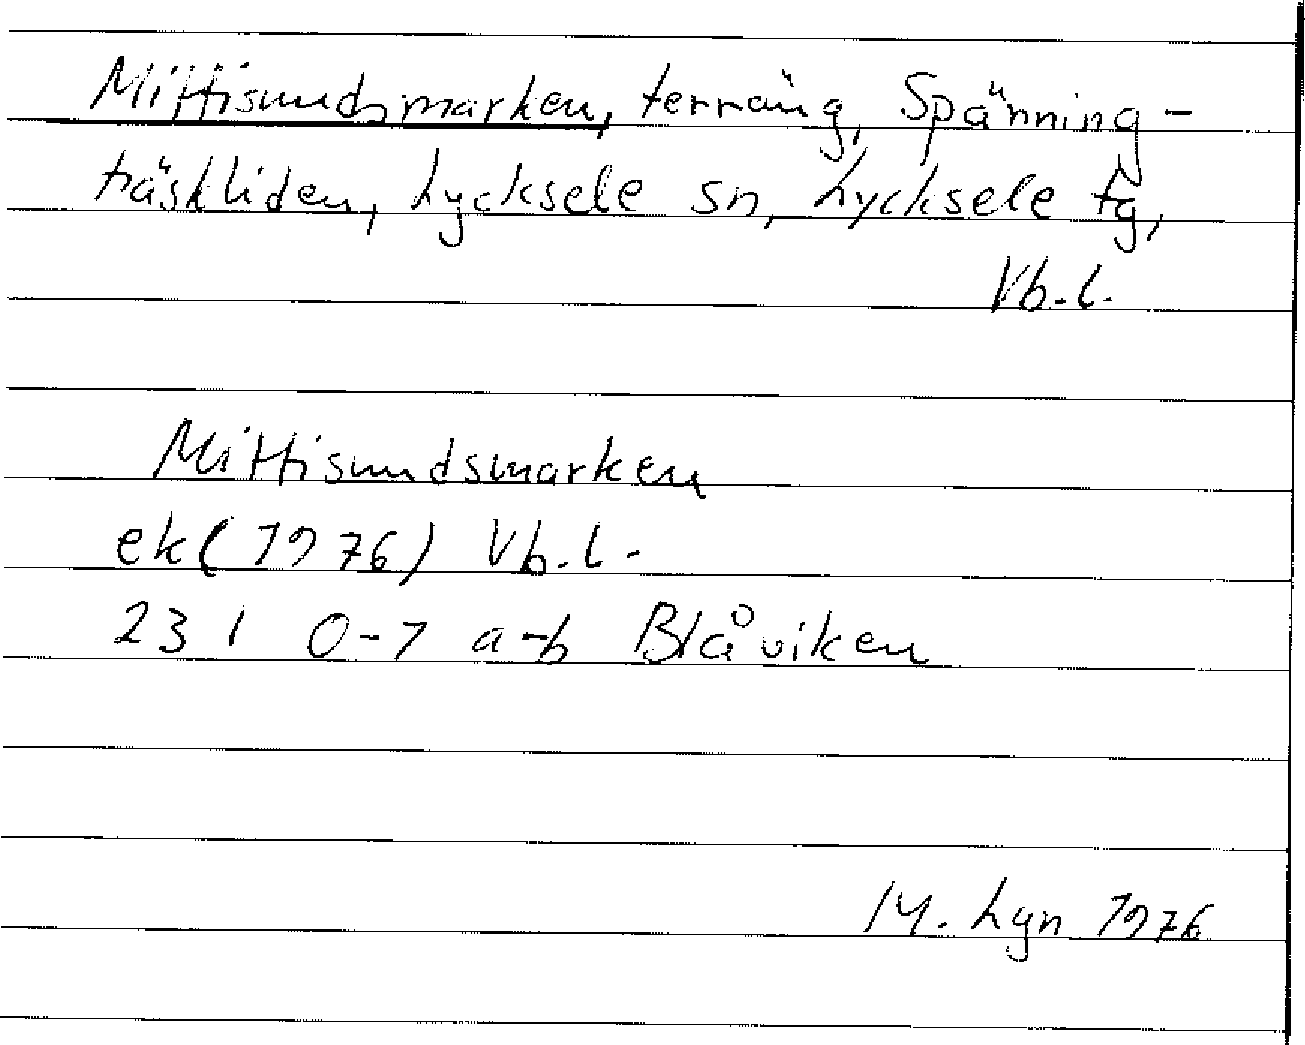 Mittisundsmarken, terräng, Spänning-
träskliden, Lycksele sn, Lycksele tg,
Vb.l.
Mittisundsmarken
ek(1976) Vb.l.
23 I 0-7 a-b Blåviken
M. Lgn 1976